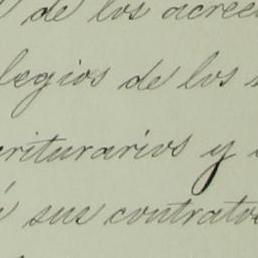 de los acree
legios de los
criturarios y
sus contratos